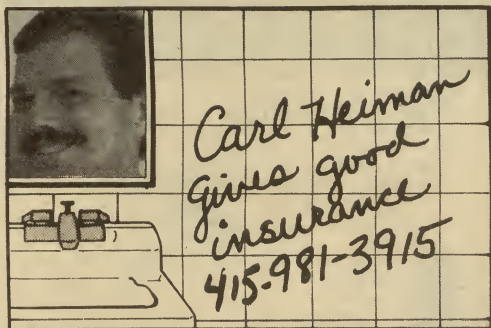 Carl Heiman
gives good
insurance
415-981-3915